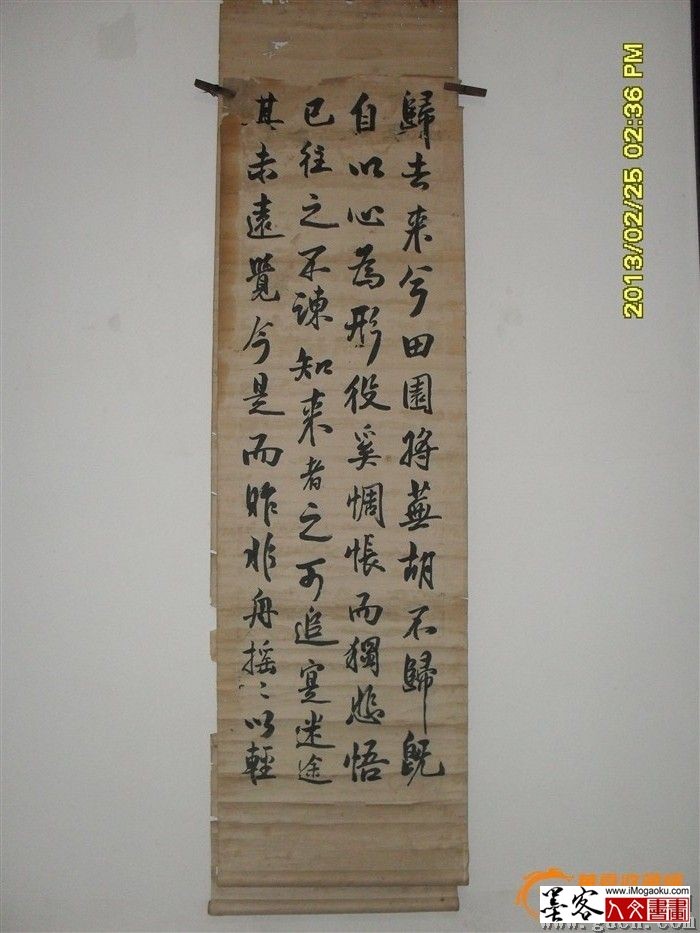 歸去来兮田園將蕪胡不歸既
自以心為形役奚惆悵而獨悲悟
已往之不諫知来者之可追寔迷途
其未遠覺今是而昨非舟摇〻以輕
2013/02/25 02:36 PM
www.iMogaoku.com
墨客人文書畫